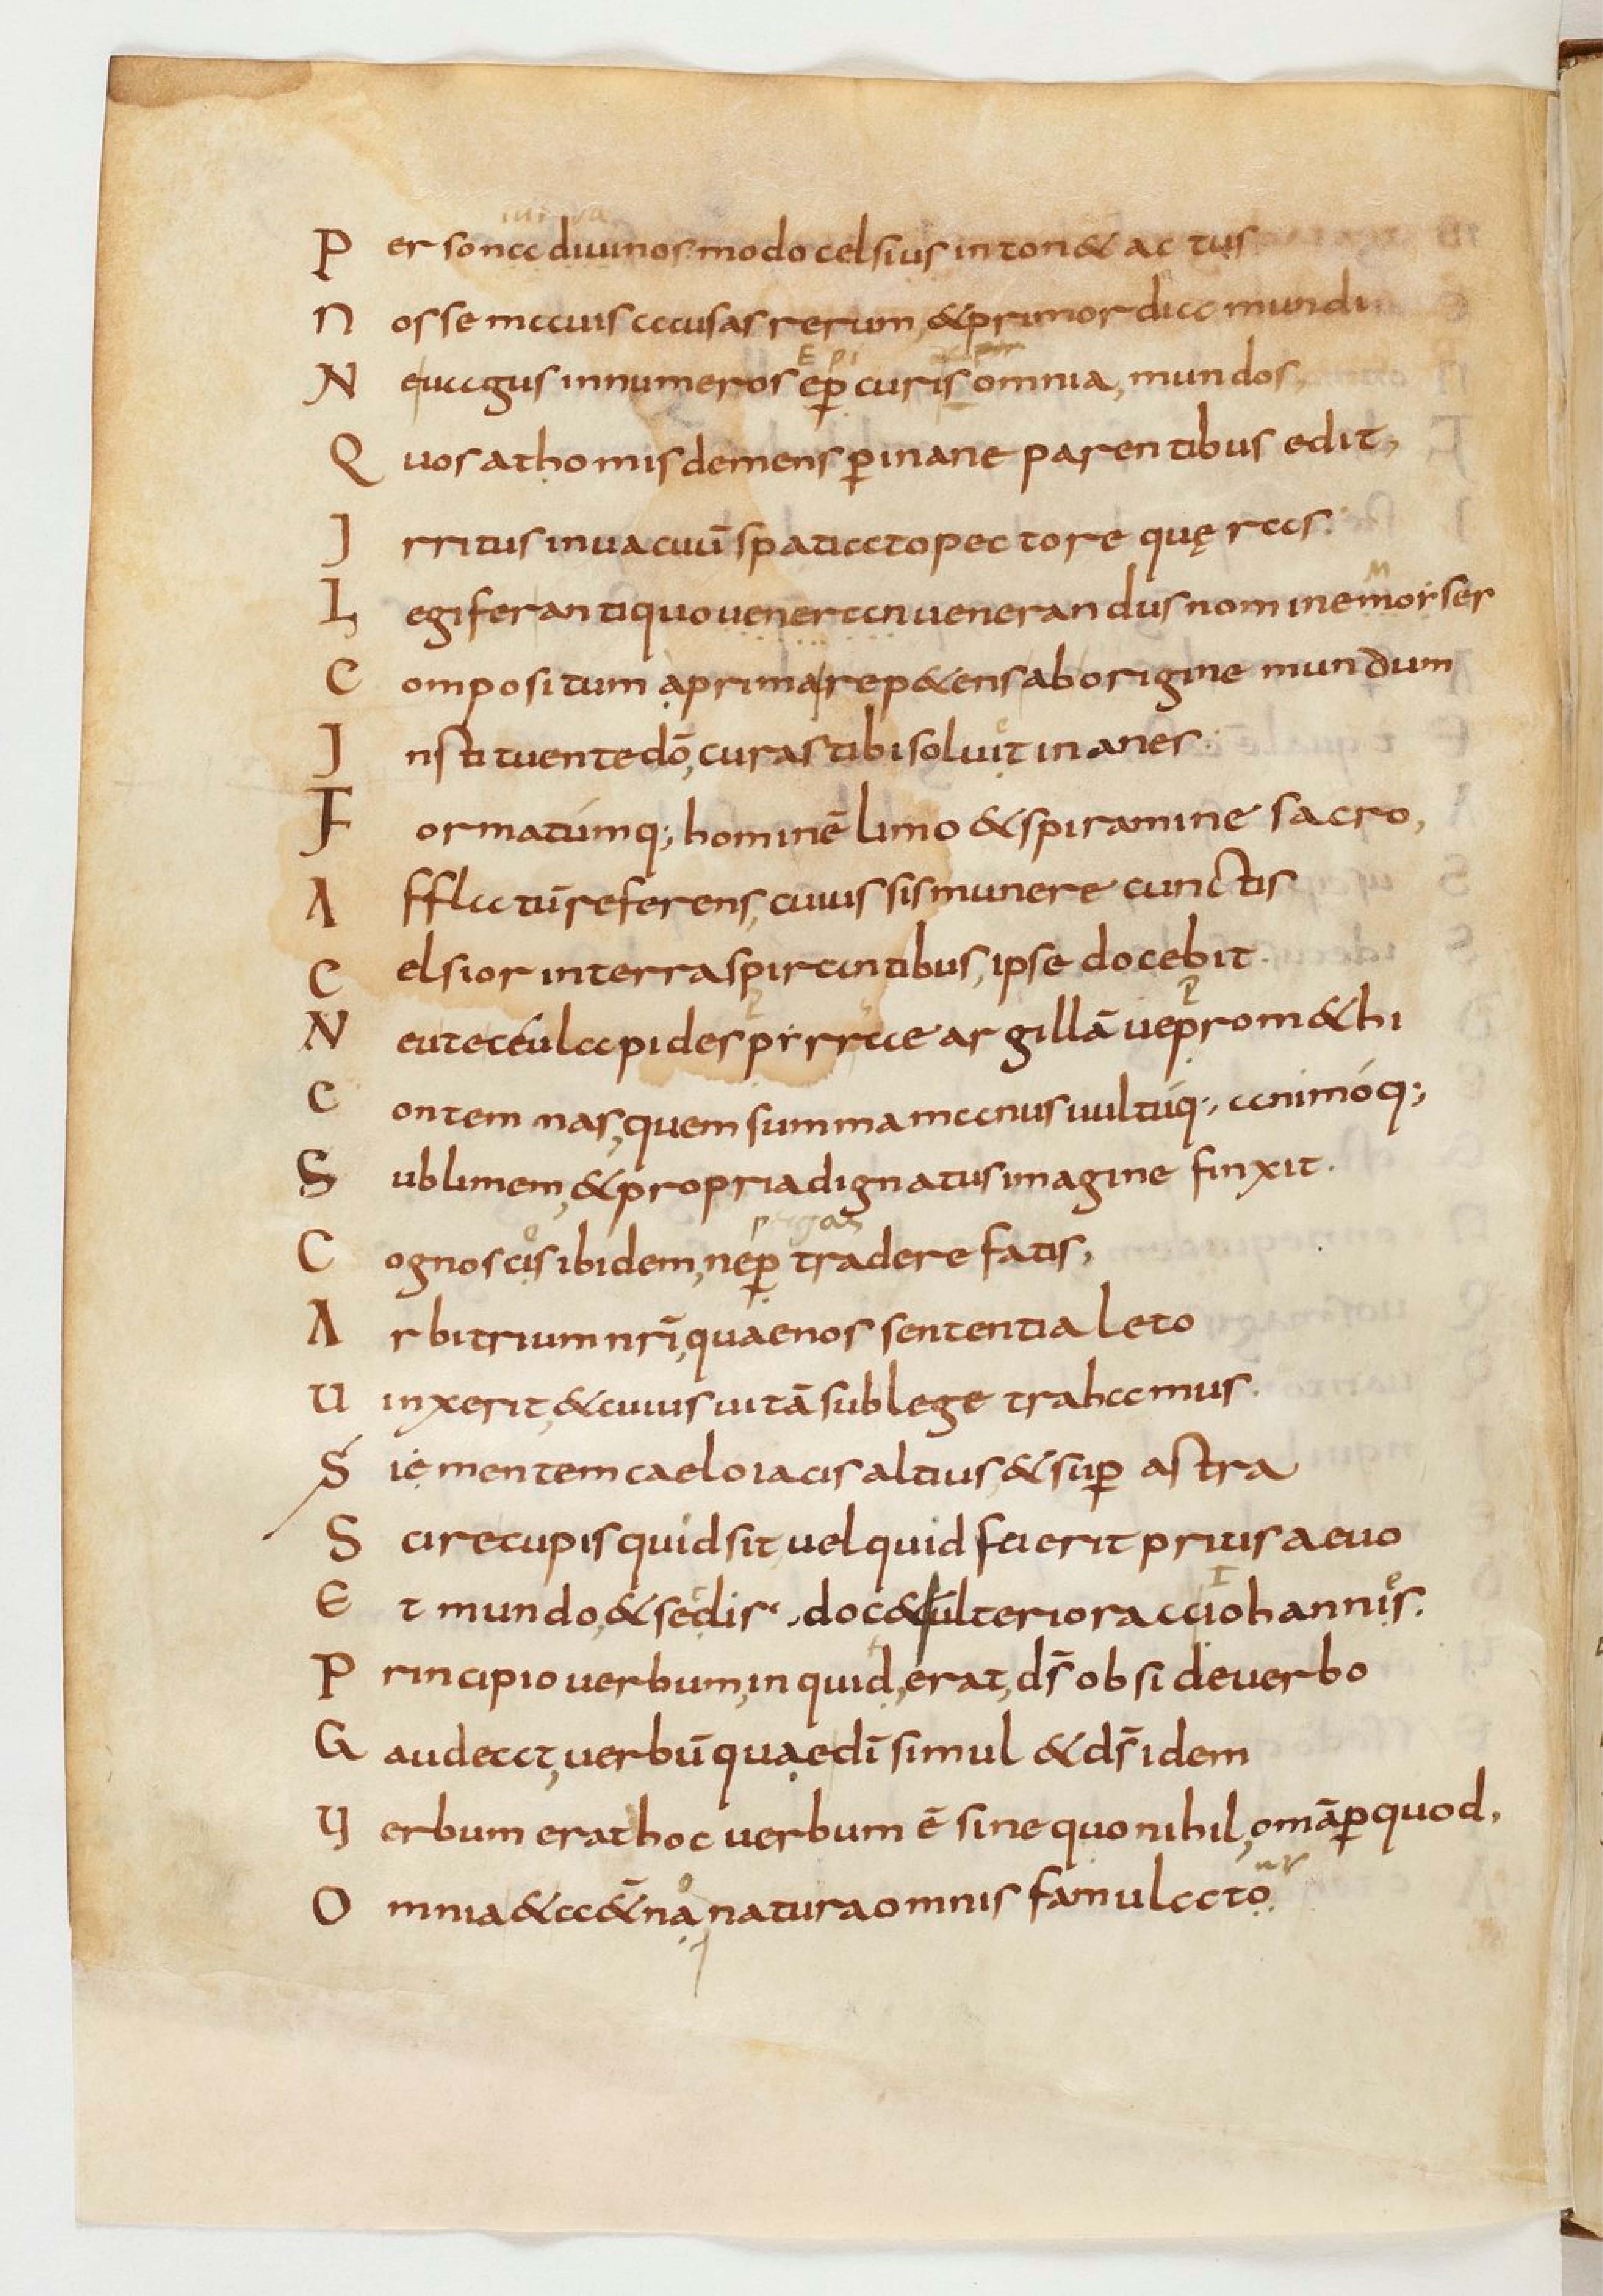 Persona diuinos modo celsius inton& actus
Nosse mauis causas rerum, &primordia mundi
E pi
Neuagus innumeros ep̲ curis omnia, mundos,
Quos athomis demens p̲ inane parentibus edit,
Irritus in uacuū spatiato pectore quęras.
M
Legifer antiquo uener an uenerandus nomine morser
Compositum aprima rep&ens ab origine mundum
Instituente dō, curas tibi soluit inanes.
Formatumq; hominē limo &spiramine sacro,
Afflatū referens, cuius sis munere cunctis
Celsior in terra spirantibus, ipse docebit.
p
Neu te ceu lapides pirrae argillā ue prom&hi
Contemnas, quem summa manus uultuq;, animoq;
Sublimem, &propria dignatus imagine finxit.
e pergas
Cognoscis ibidem, nep̲ tradere fatis,
Arbitrium nrī, quae nos sententia leto
Uinxerit, &cuius uitā sub lege trahamus.
Sie mentem caelo iacis altius, &sup̲ astra
Scire cupis quid sit, uel quid fuerit prius aeuo
I e
Et mundo, &sedis. doc& ulteriora a iohannis.
t
Principio uerbum, inquid, erat, ds̄ obside uerbo
Gaudeat, uerbū quae dī simul &ds̄ idem
Uerbum erat hoc uerbum ē sine quo nihil, omā p̲ quod,
o ur
Omnia &a&̄na, natura omnis famulato